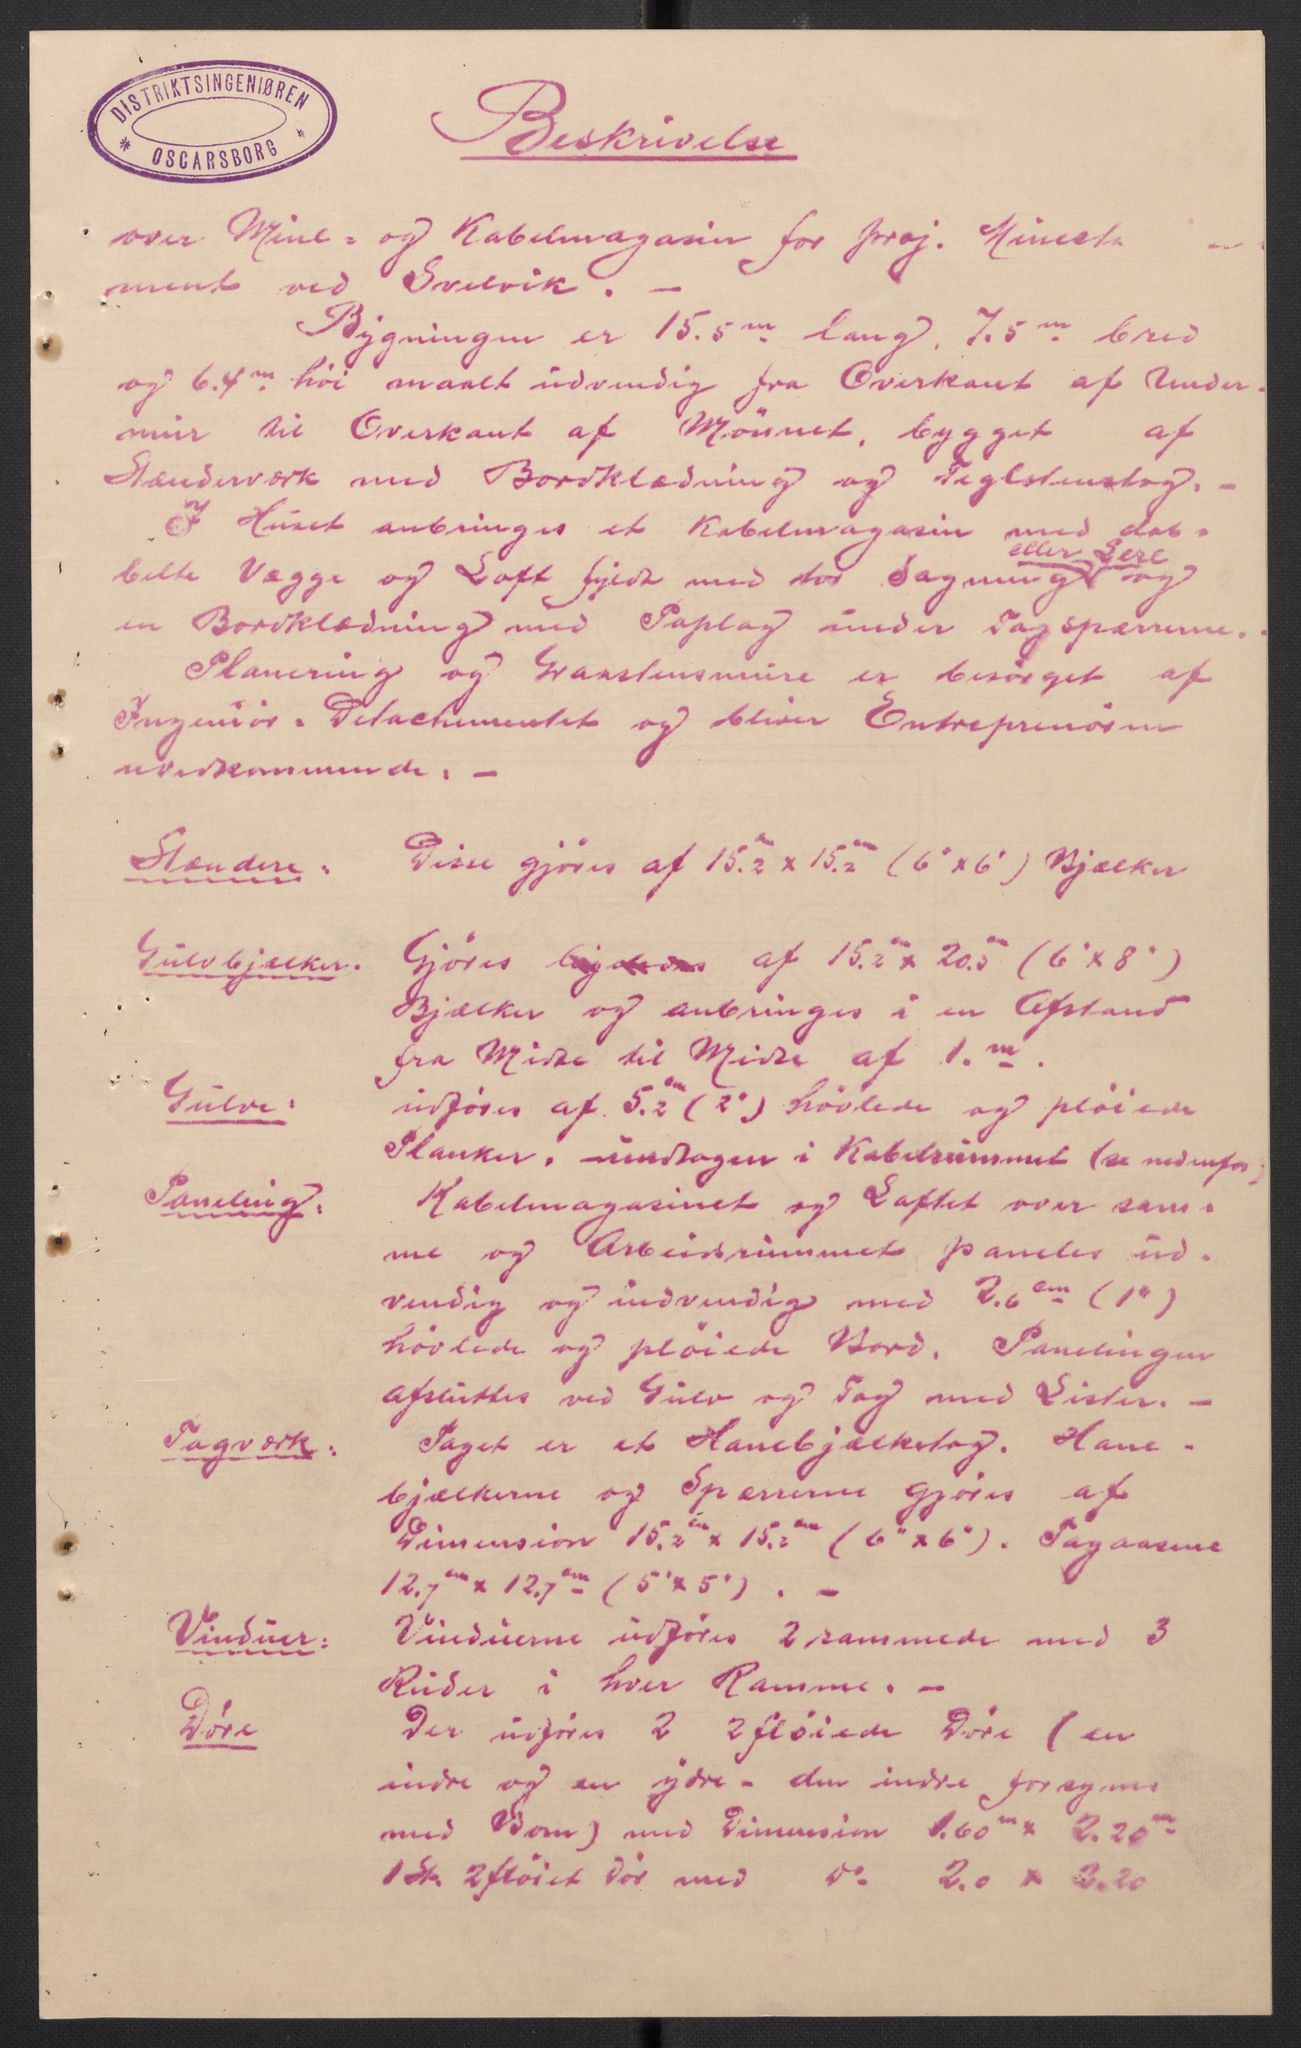 DISTRIKTSINGENIØREN
* OSCARSBORG *
Beskrivelse
over Mine= og Kabelmagasin for proj. Mineeta
ment ved Svelvik. —
Bygningen er 15.5 m lang, 7.5 m bred
og 6.4 m höi maalt udvendig fra Overkant af Under-
mur til Overkant af Mönnet, bygget af
Stænderværk med Bordklædning og Teglstenstag. —
I Huset anbringes et Kabelmagasin med dob-
belte Vægge og Loft fyldt med tör Sagmug eller Lere og
en Bordklædning med Paplag under Tagspærrerne.
Planering og Graastensmure er besörget af
Ingeniör-Detachementet og bliver Entreprenören
uvedkommende. —
Stændere: Disse gjöres af 15.2 cm x 15.2 cm (6" x 6") Bjælker
Gulvbjælker. Gjöres ligeledes af 15.2 cm x 20.5 cm (6" x 8")
Bjælker og anbringes i en Afstand
fra Midte til Midte af 1. m.
Gulve: udföres af 5.2 cm (2") hövlede og plöiede
Planker. undtagen i Kabelrummet (se nedenfor)
Paneling: Kabelmagasinet og Loftet over sam-
me og Arbeidsrummet paneles ud-
vendig og indvendig med 2.6 cm (1")
hövlede og plöiede Bord. Panelingen
afsluttes ved Gulv og Tag med Lister. —
Tagværk: Taget er et Hanebjælketag. Hane-
bjælkerne og Spærrerne gjöres af
Dimension 15.2 cm x 15.2 cm (6" x 6"). Tagaasene
12.7 cm x 12.7 cm (5" x 5"). —
Vinduer: Vinduerne udföres 2 rammede med 3
Ruder i hver Ramme. —
Döre Der udföres 2 2flöiede Döre (en
indre og en ydre - den indre forsynes
med Bom) med Dimension 1.60 m x 2.20 m
1 Stk. 2flöiet Dör med Do 2.0 x 2.20